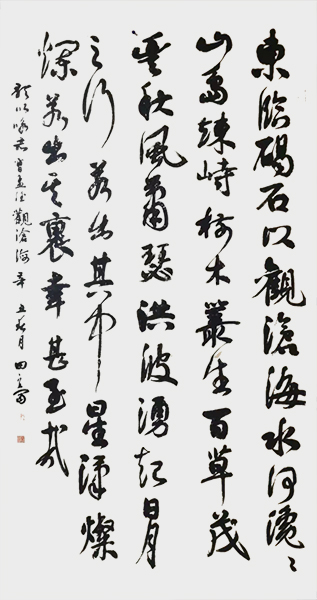 東臨碣石以觀滄海水何澹〻
山島竦峙樹木叢生百草茂
豐秋風蕭瑟洪波湧起日月
之行若出其中星漢燦
爛若出其裏幸甚至哉
歌以詠志曹孟德觀滄海辛丑月田